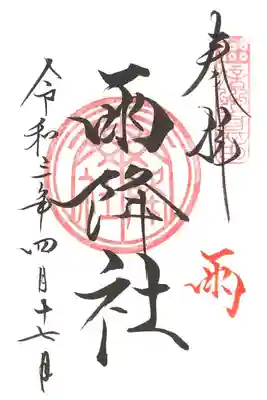 奉拝
雨
雨降社
令和三年四月十七日